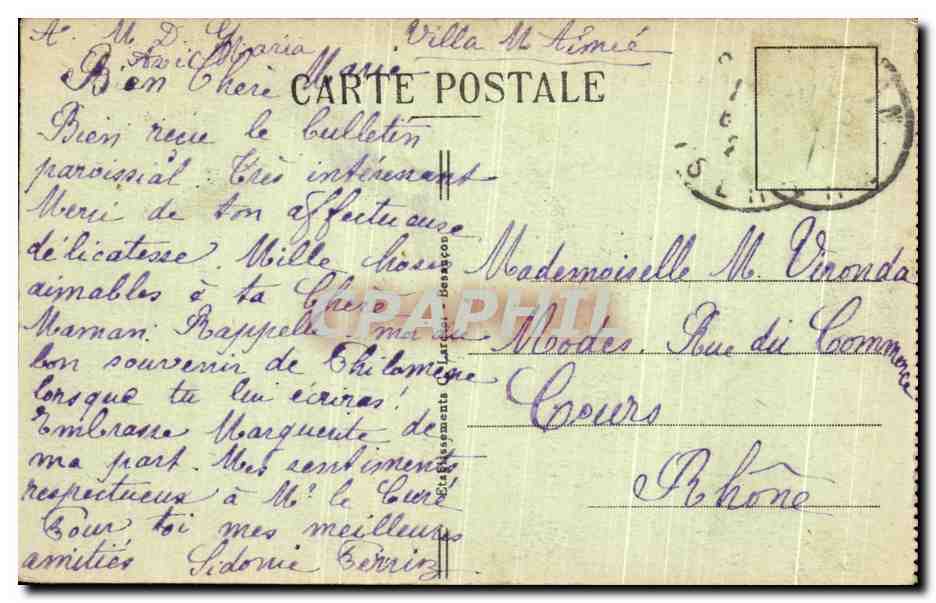 A. M. D. G. Villa M Aimée
Maria
Bien Chère Marie
CARTE POSTALE
Bien reçu le bulletin
paroissial. Très intéressant
Merci de ton affectueuse
délicatesse. Mille choses
aimables à ta Chère
Maman. Rappelle-moi au
bon souvenir de Philomène
lorsque tu lui écriras!
Embrasse Marguerite de
ma part. Mes sentiments
respectueux à Mr le Curé
Pour toi mes meilleures
amitiés Sidonie
Etablissements C. Lardier - Besançon
CPAPHIL
Mademoiselle M. Vironda
Modes. Rue du Commerce
Cours
Rhône